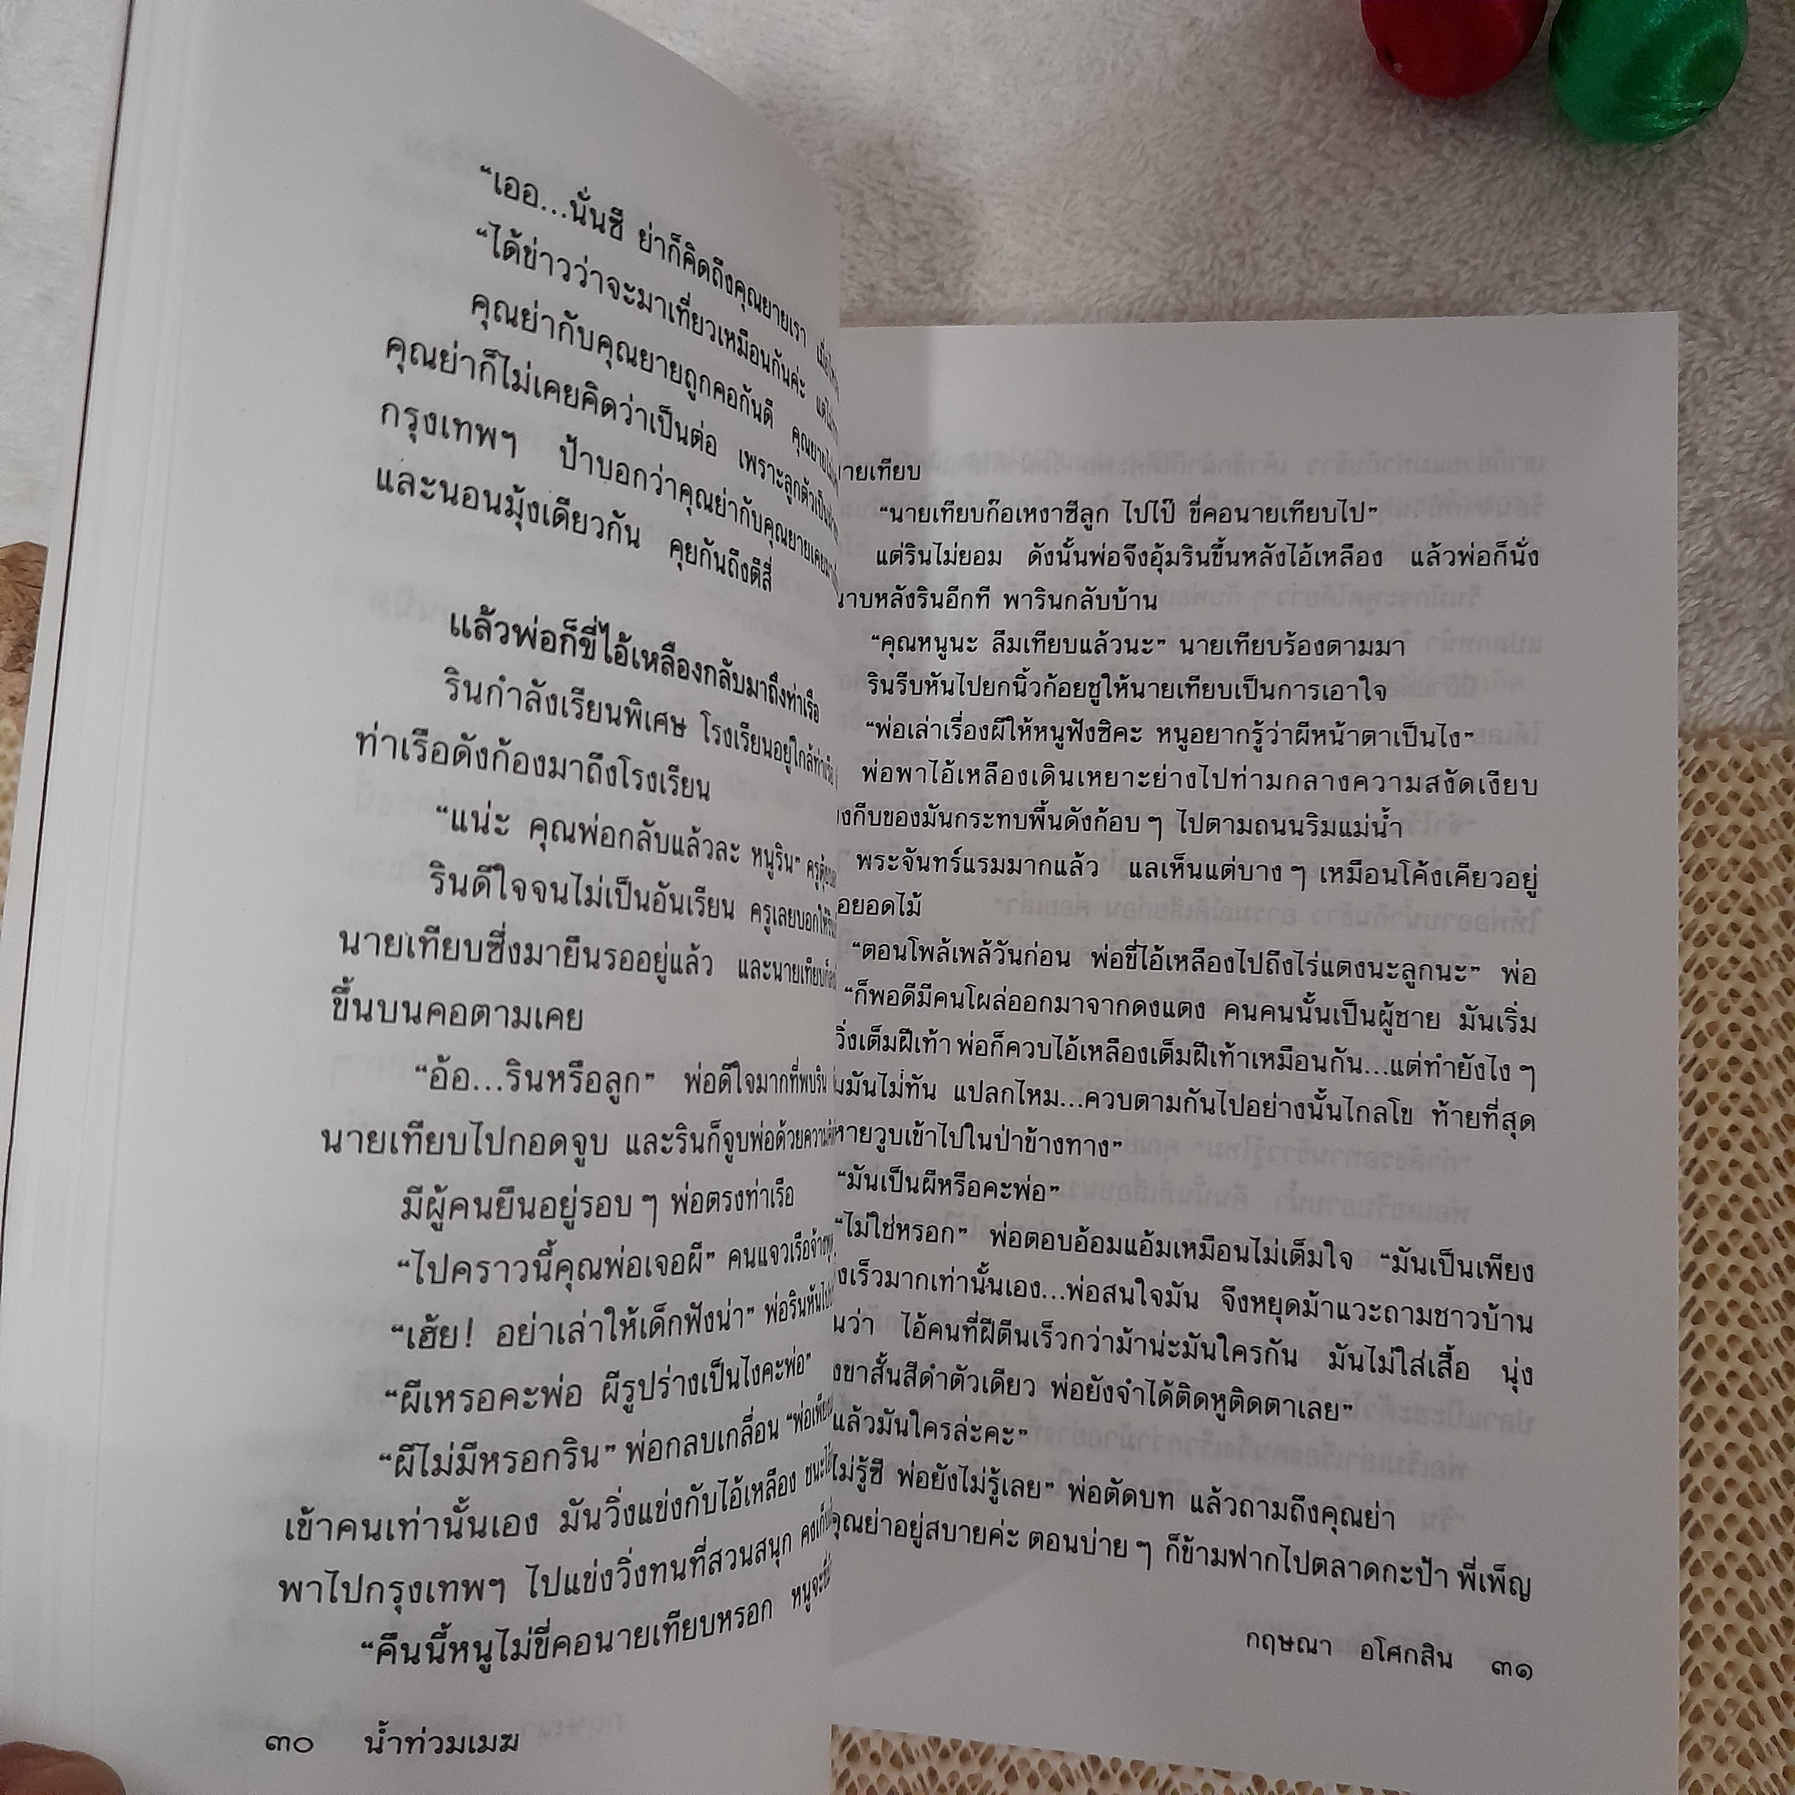 “เออ...นั่นซี ย่าก็คิดถึงคุณยายเรา
“ได้ข่าวว่าจะมาเที่ยวเหมือนกันค่ะ
คุณย่ากับคุณยายถูกคอกันดี
คุณย่าก็ไม่เคยคิดว่าเป็นต่อ เพราะลูกตัวเป็น
กรุงเทพฯ ป้าบอกว่าคุณย่ากับคุณยายเคย
และนอนมุ้งเดียวกัน คุยกันถึงตีสี่
แล้วพ่อก็ขี่ไอ้เหลืองกลับมาถึงท่าเรือ
รินกำลังเรียนพิเศษ โรงเรียนอยู่ใกล้ท่าเรือ
ท่าเรือดังก้องมาถึงโรงเรียน
“แน่ะ คุณพ่อกลับแล้วละ หนูริน”
รินดีใจจนไม่เป็นอันเรียน ครูเลยบอกให้
นายเทียบซึ่งมายืนรออยู่แล้ว และนายเทียบ
ขึ้นบนคอตามเคย
“อ้อ...รินหรือลูก” พ่อดีใจมากที่พบริน
นายเทียบไปกอดจูบ และรินก็จูบพ่อด้วยความ
มีผู้คนยืนอยู่รอบ ๆ พ่อตรงท่าเรือ
“ไปคราวนี้คุณพ่อเจอผี” คนแจวเรือจ้าง
“เฮ้ย! อย่าเล่าให้เด็กฟังน่า” พ่อรินหันไป
“ผีเหรอคะพ่อ ผีรูปร่างเป็นไงคะพ่อ”
“ผีไม่มีหรอกริน” พ่อกลบเกลื่อน “พ่อเพียง
เข้าคนเท่านั้นเอง มันวิ่งแข่งกับไอ้เหลือง
พาไปกรุงเทพฯ ไปแข่งวิ่งทนที่สวนสนุก
“คืนนี้หนูไม่ขี่คอนายเทียบหรอก หนูจะ
๓๐ น้ำท่วมเมฆ
นายเทียบ
“นายเทียบก๊อเหงาซีลูก ไปไป๊ ขี่คอนายเทียบไป”
แต่รินไม่ยอม ดังนั้นพ่อจึงอุ้มรินขึ้นหลังไอ้เหลือง แล้วพ่อก็นั่ง
หลังรินอีกที พารินกลับบ้าน
“คุณหนูนะ ลืมเทียบแล้วนะ” นายเทียบร้องตามมา
รินรีบหันไปยกนิ้วก้อยชูให้นายเทียบเป็นการเอาใจ
“พ่อเล่าเรื่องผีให้หนูฟังฮิคะ หนูอยากรู้ว่าผีหน้าตาเป็นไง”
พ่อพาไอ้เหลืองเดินเหยาะย่างไปท่ามกลางความสงัดเงียบ
กีบของมันกระทบพื้นดังก้อบ ๆ ไปตามถนนริมแม่น้ำ
พระจันทร์แรมมากแล้ว แลเห็นแต่บาง ๆ เหมือนโค้งเคียวอยู่
ยอดไม้
“ตอนโพล้เพล้วันก่อน พ่อขี่ไอ้เหลืองไปถึงไร่แตงนะลูกนะ” พ่อ
“ก็พอดีมีคนโผล่ออกมาจากดงแตง คนคนนั้นเป็นผู้ชาย มันเริ่ม
วิ่งเต็มฝีเท้า พ่อก็ควบไอ้เหลืองเต็มฝีเท้าเหมือนกัน...แต่ทำยังไง ๆ
มันไม่ทัน แปลกไหม...ควบตามกันไปอย่างนั้นไกลโข ท้ายที่สุด
หายวูบเข้าไปในป่าข้างทาง”
“มันเป็นผีหรือคะพ่อ”
“ไม่ใช่หรอก” พ่อตอบอ้อมแอ้มเหมือนไม่เต็มใจ “มันเป็นเพียง
เร็วมากเท่านั้นเอง...พ่อสนใจมัน จึงหยุดม้าแวะถามชาวบ้าน
ว่า ไอ้คนที่ฝีตีนเร็วกว่าม้าน่ะมันใครกัน มันไม่ใส่เสื้อ นุ่ง
ขาสั้นสีดำตัวเดียว พ่อยังจำได้ติดหูติดตาเลย”
แล้วมันใครล่ะคะ”
ไม่รู้ซี พ่อยังไม่รู้เลย” พ่อตัดบท แล้วถามถึงคุณย่า
คุณย่าอยู่สบายค่ะ ตอนบ่าย ๆ ก็ข้ามฟากไปตลาดกะป้า พี่เพ็ญ
กฤษณา อโศกสิน ๓๑